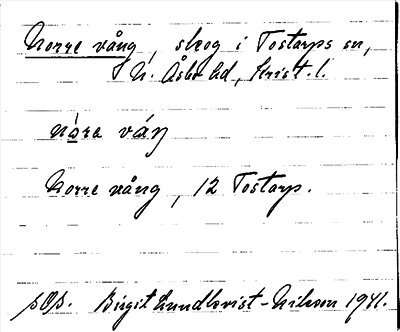 Norre vång, skog i Tostarps sn,
N. Åsbo hd, Krist. l.
nɔ̀ra váŋ
Norre vång, 12 Tostarp.
Birgit Lundkvist-Nilsson 1941.